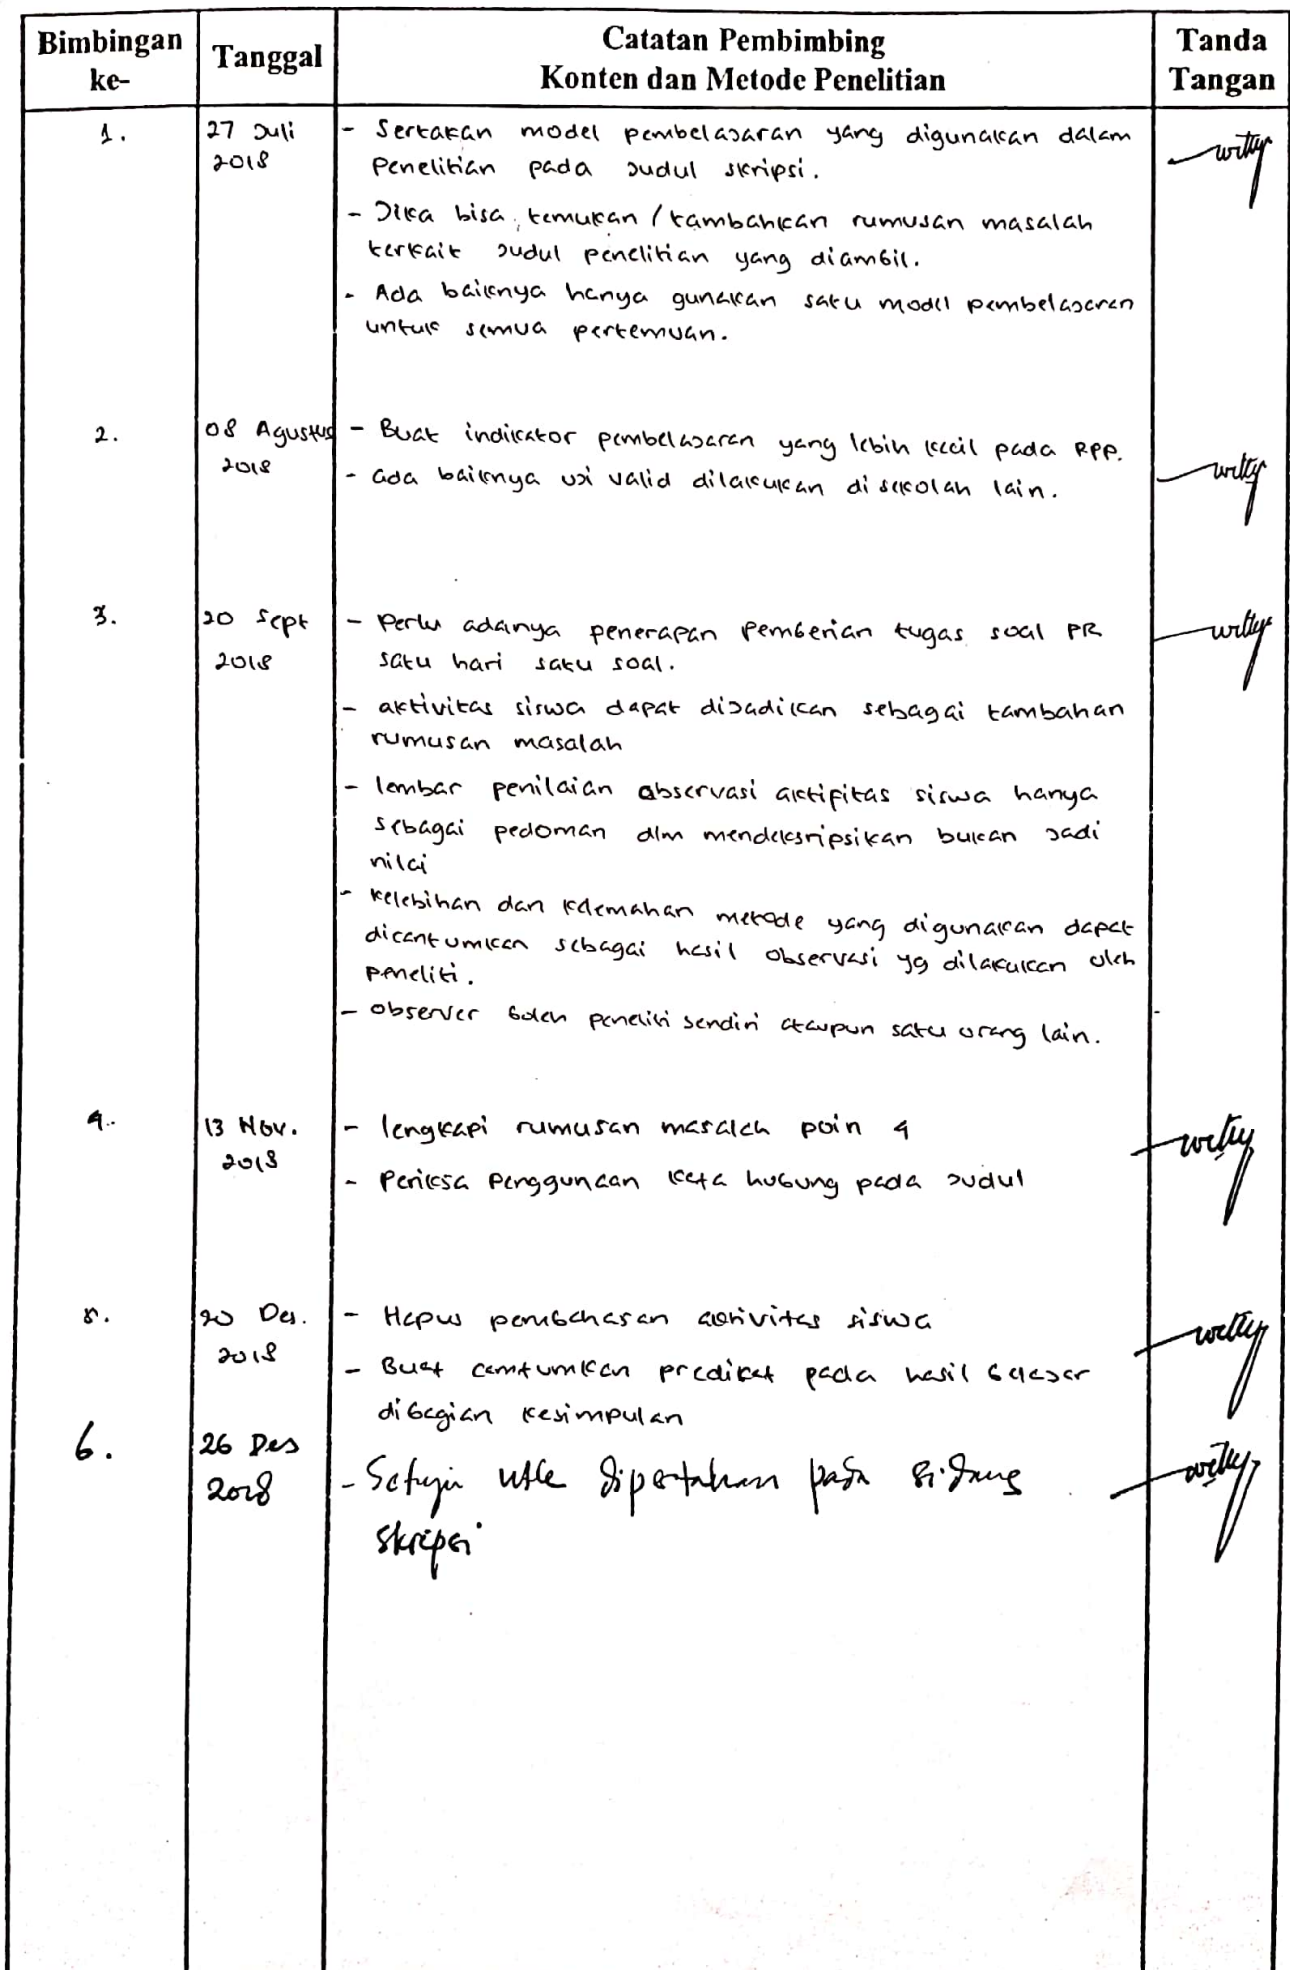 Bimbingan ke-
Tanggal
Catatan Pembimbing
Konten dan Metode Penelitian
Tanda Tangan
1.
27 Juli
2018
- Sertakan model pembelajaran yang digunakan dalam
Penelitian pada judul skripsi.
- Jika bisa, temukan / tambahkan rumusan masalah
terkait judul penelitian yang diambil.
- Ada baiknya hanya gunakan satu model pembelajaran
untuk semua pertemuan.
2.
08 Agustus
2018
- Buat indikator pembelajaran yang lebih kecil pada RPP.
- ada baiknya uji valid dilakukan di sekolah lain.
3.
20 Sept
2018
- Perlu adanya penerapan pemberian tugas soal PR
satu hari satu soal.
- aktivitas siswa dapat dijadikan sebagai tambahan
rumusan masalah
- lembar penilaian observasi aktifitas siswa hanya
sebagai pedoman dlm mendeksripsikan bukan jadi
nilai
- kelebihan dan kelemahan metode yang digunakan dapat
dicantumkan sebagai hasil observasi yg dilakukan oleh
peneliti.
- observer boleh peneliti sendiri ataupun satu orang lain.
4.
13 Nov.
2018
- lengkapi rumusan masalah poin 4
- Periksa penggunaan kata hubung pada judul
5.
20 Des.
2018
- Hapus pembahasan aktivitas siswa
- Buat cantumkan predikat pada hasil belajar
dibagian kesimpulan
6.
26 Des
2018
- Setuju utk dipertahan pada sidang
skripsi